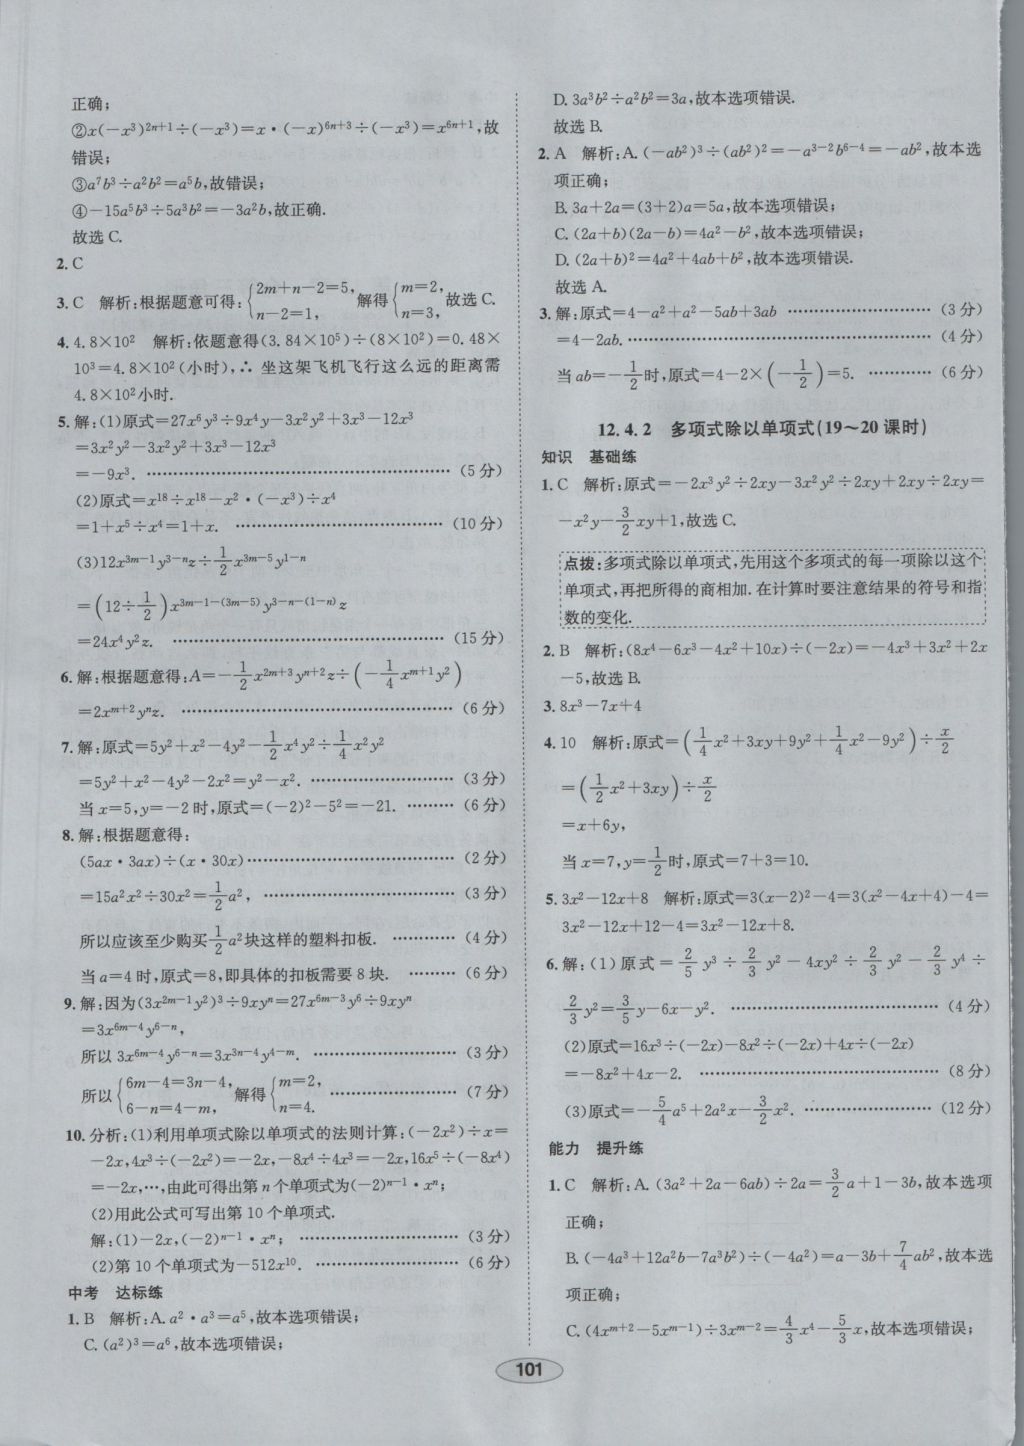 正确;
②x(-x³)²ⁿ⁺¹÷(-x³)=x·(-x)⁶ⁿ⁺³÷(-x³)=x⁶ⁿ⁺¹,故
错误;
③a⁷b³÷a²b²=a⁵b,故错误;
④-15a⁵b³÷5a³b²=-3a²b,故正确.
故选 C.
2. C
3. C 解析:根据题意可得:{2m+n-2=5, n-2=1, 解得{m=2, n=3, 故选 C.
4. 4.8×10² 解析:依题意得(3.84×10⁵)÷(8×10²)=0.48×
10³=4.8×10²(小时),∴ 坐这架飞机飞行这么远的距离需
4.8×10²小时.
5. 解:(1)原式=27x⁶y³÷9x⁴y-3x²y²+3x³-12x³
=3x²y²-3x²y²+3x³-12x³
=-9x³. ……(5 分)
(2)原式=x¹⁸÷x¹⁸-x²·(-x³)÷x⁴
=1+x⁵÷x⁴=1+x. ……(10 分)
(3)12x³ᵐ⁻¹y³⁻ⁿz÷1/2x³ᵐ⁻⁵y¹⁻ⁿ
=(12÷1/2)x^(3m-1-(3m-5))y^(3-n-(1-n))z
=24x⁴y²z. ……(15 分)
6. 解:根据题意得:A=-1/2x²ᵐ⁺³yⁿ⁺²z÷(-1/4xᵐ⁺¹y²)
=2xᵐ⁺²yⁿz. ……(6 分)
7. 解:原式=5y²+x²-4y²-1/2x⁴y²÷1/4x²y²
=5y²+x²-4y²-2x²=y²-x². ……(3 分)
当 x=5,y=-2 时,原式=(-2)²-5²=-21. ……(6 分)
8. 解:根据题意得:
(5ax·3ax)÷(x·30x) ……(2 分)
=15a²x²÷30x²=1/2a², ……(3 分)
所以应该至少购买1/2a²块这样的塑料扣板. ……(4 分)
当 a=4 时,原式=8,即具体的扣板需要 8 块. ……(6 分)
9. 解:因为(3x²ᵐ⁻¹y²)³÷9xyⁿ=27x⁶ᵐ⁻³y⁶÷9xyⁿ
=3x⁶ᵐ⁻⁴y⁶⁻ⁿ,
所以 3x⁶ᵐ⁻⁴y⁶⁻ⁿ=3x³ⁿ⁻⁴y⁴⁻ᵐ. ……(3 分)
所以{6m-4=3n-4, 6-n=4-m, 解得{m=2, n=4. ……(7 分)
10. 分析:(1)利用单项式除以单项式的法则计算:(-2x²)÷x=
-2x,4x³÷(-2x²)=-2x,-8x⁴÷4x³=-2x,16x⁵÷(-8x⁴)
=-2x,…,由此可得出第 n 个单项式为(-2)ⁿ⁻¹·xⁿ;
(2)用此公式可写出第 10 个单项式.
解:(1)-2x,(-2)ⁿ⁻¹·xⁿ; ……(3 分)
(2)第 10 个单项式为-512x¹⁰. ……(6 分)
中考 达标练
1. B 解析:A. a²·a³=a⁵,故本选项错误;
C. (a²)³=a⁶,故本选项错误;
D. 3a³b²÷a²b²=3a,故本选项错误.
故选 B.
2. A 解析:A. (-ab²)³÷(ab²)²=-a³⁻²b⁶⁻⁴=-ab²,故本选
项正确;
B. 3a+2a=(3+2)a=5a,故本选项错误;
C. (2a+b)(2a-b)=4a²-b²,故本选项错误;
D. (2a+b)²=4a²+4ab+b²,故本选项错误.
故选 A.
3. 解:原式=4-a²+a²-5ab+3ab ……(3 分)
=4-2ab. ……(4 分)
当 ab=-1/2时,原式=4-2×(-1/2)=5. ……(6 分)
12.4.2 多项式除以单项式(19~20 课时)
知识 基础练
1. C 解析:原式=-2x³y²÷2xy-3x²y²÷2xy+2xy÷2xy=
-x²y-3/2xy+1,故选 C.
点拨:多项式除以单项式,先用这个多项式的每一项除以这个
单项式,再把所得的商相加.在计算时要注意结果的符号和指
数的变化.
2. B 解析:(8x⁴-6x³-4x²+10x)÷(-2x)=-4x³+3x²+2x
-5,故选 B.
3. 8x³-7x+4
4. 10 解析:原式=(1/4x²+3xy+9y²+1/4x²-9y²)÷x/2
=(1/2x²+3xy)÷x/2
=x+6y,
当 x=7,y=1/2时,原式=7+3=10.
5. 3x²-12x+8 解析:原式=3(x-2)²-4=3(x²-4x+4)-4=
3x²-12x+12-4=3x²-12x+8.
6. 解:(1)原式=2/5y³÷2/3y²-4xy²÷2/3y²-2/3y⁴÷
2/3y²=3/5y-6x-y². ……(4 分)
(2)原式=16x³÷(-2x)-8x²÷(-2x)+4x÷(-2x)
=-8x²+4x-2. ……(8 分)
(3)原式=-5/4a⁵+2a²x-3/2x². ……(12 分)
能力 提升练
1. C 解析:A. (3a²+2a-6ab)÷2a=3/2a+1-3b,故本选项
正确;
B. (-4a³+12a²b-7a³b²)÷(-4a²)=a-3b+7/4ab²,故本选
项正确;
C. (4xᵐ⁺²-5xᵐ⁻¹)÷3xᵐ⁻²=4/3x⁴-5/3x,故本选项错误;
101